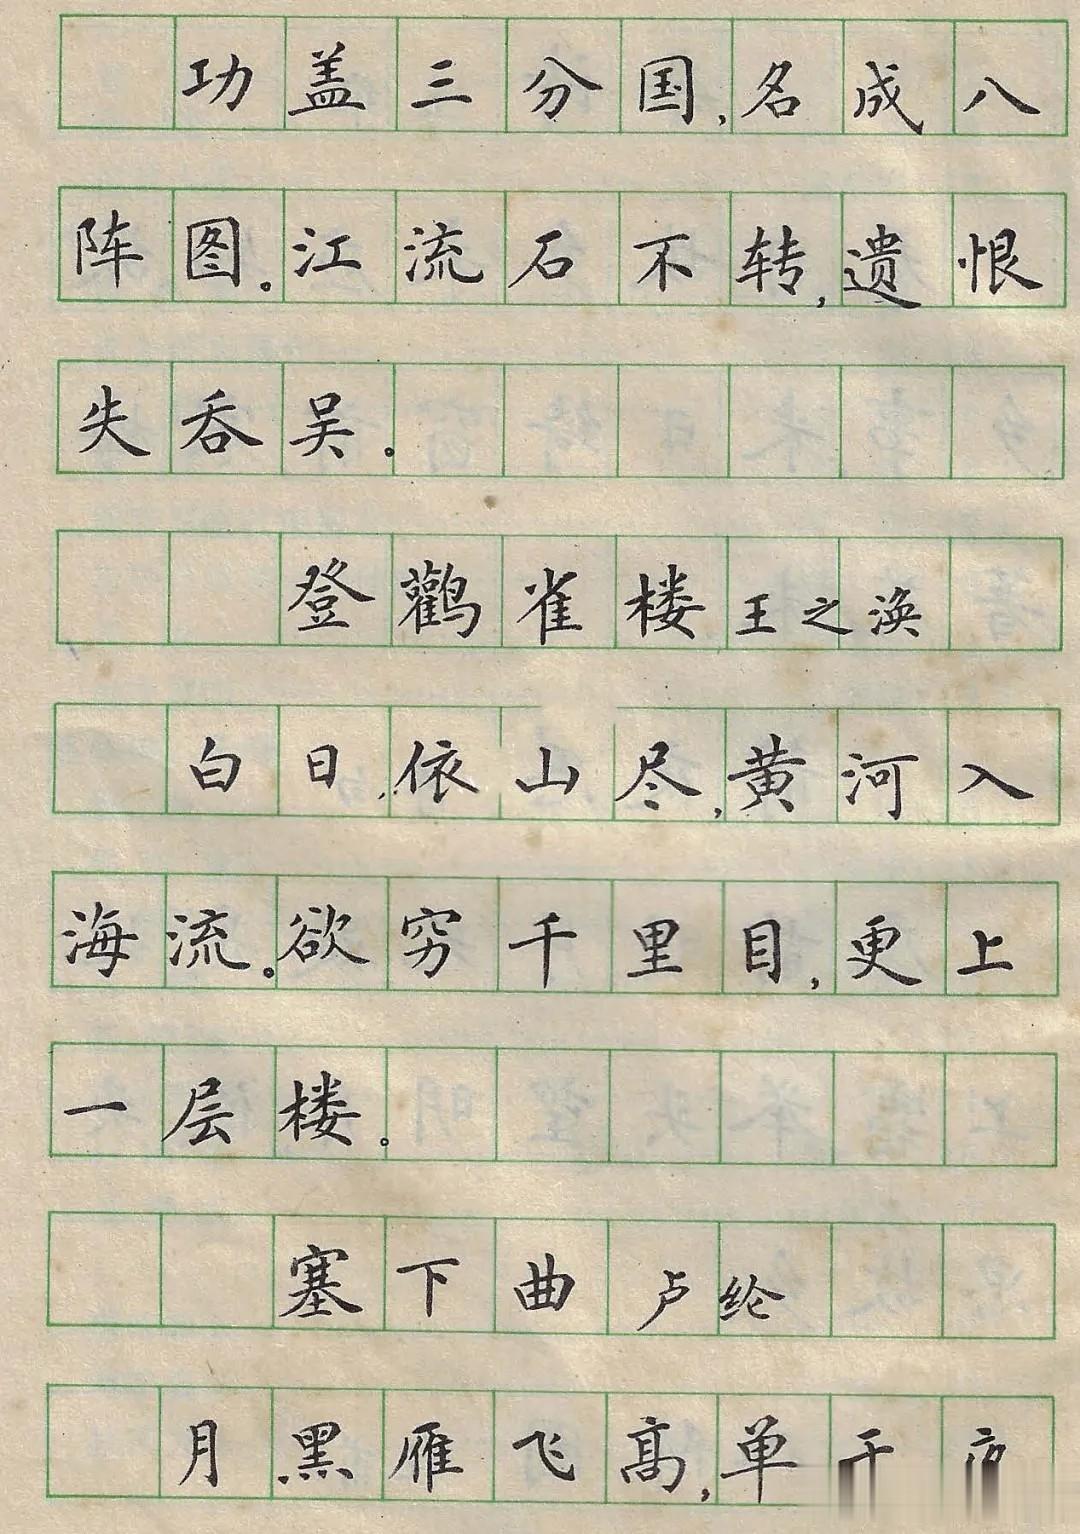 功盖三分国,名成八
阵图。江流石不转,遗恨
失吞吴。
登鹳雀楼 王之涣
白日依山尽,黄河入
海流。欲穷千里目,更上
一层楼。
塞下曲 卢纶
月黑雁飞高,单于